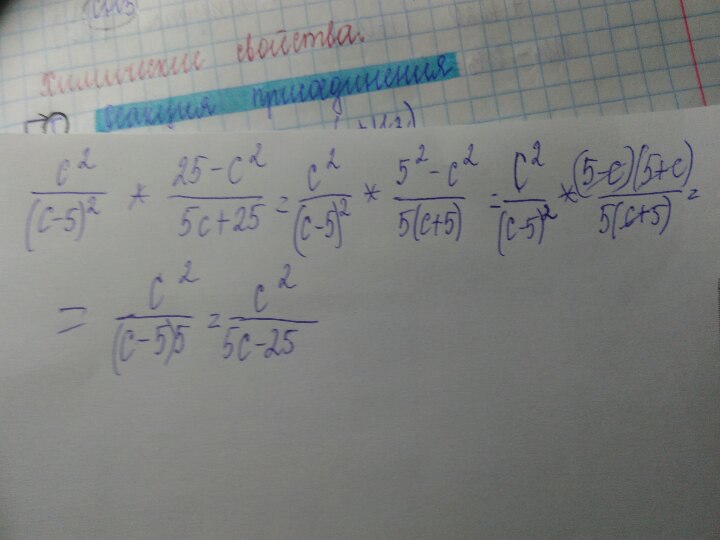 Химические свойства.
реакция присоединения
\frac{c^2}{(c-5)^2} * \frac{25-c^2}{5c+25} = \frac{c^2}{(c-5)^2} * \frac{5^2-c^2}{5(c+5)} = \frac{c^2}{(c-5)^2} * \frac{(5-c)(5+c)}{5(c+5)} =
= \frac{c^2}{(c-5)5} = \frac{c^2}{5c-25}